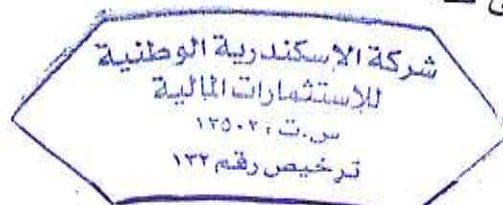 شركة الإسكندرية الوطنية
للاستثمارات المالية
س.ت : ١٢٥٠٢٠
ترخيص رقم ١٣٢